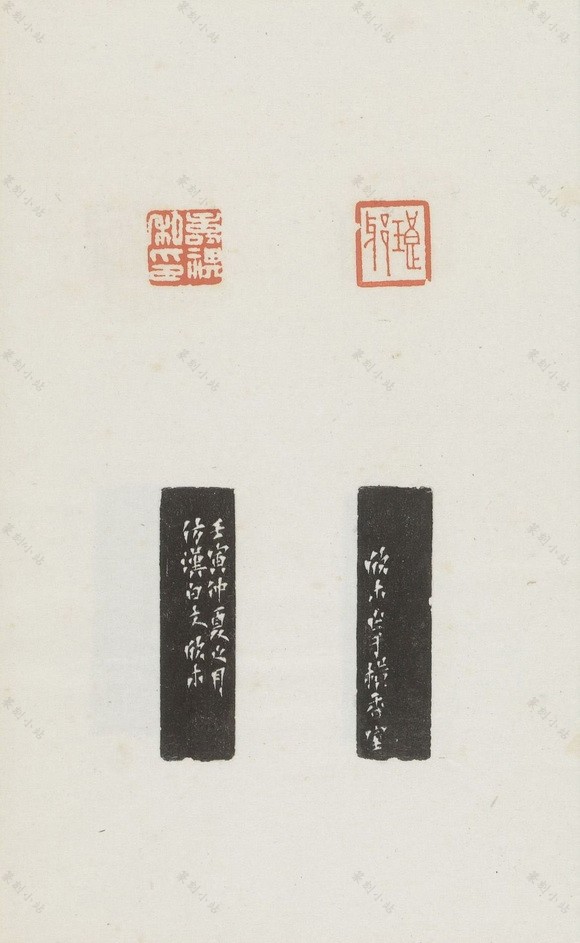 私印
欣木
于橫香室
壬寅仲夏之月
仿漢白文欣木
篆刻小站